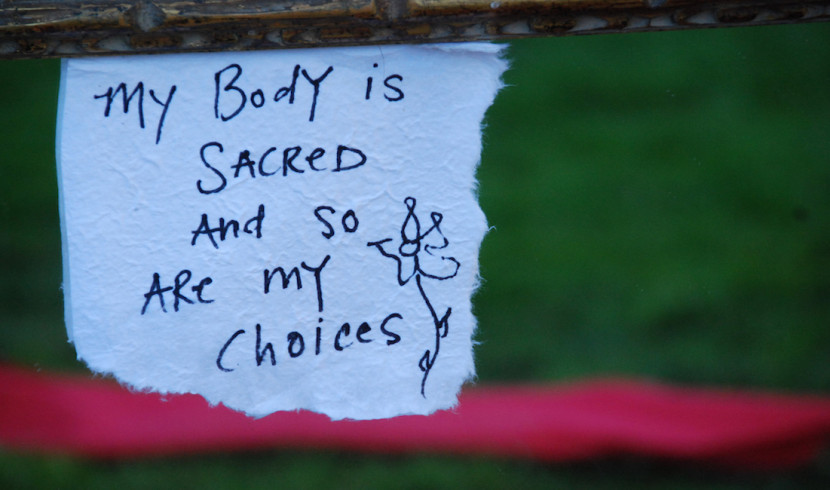 My Body is
SACReD
And so
ARe my
Choices